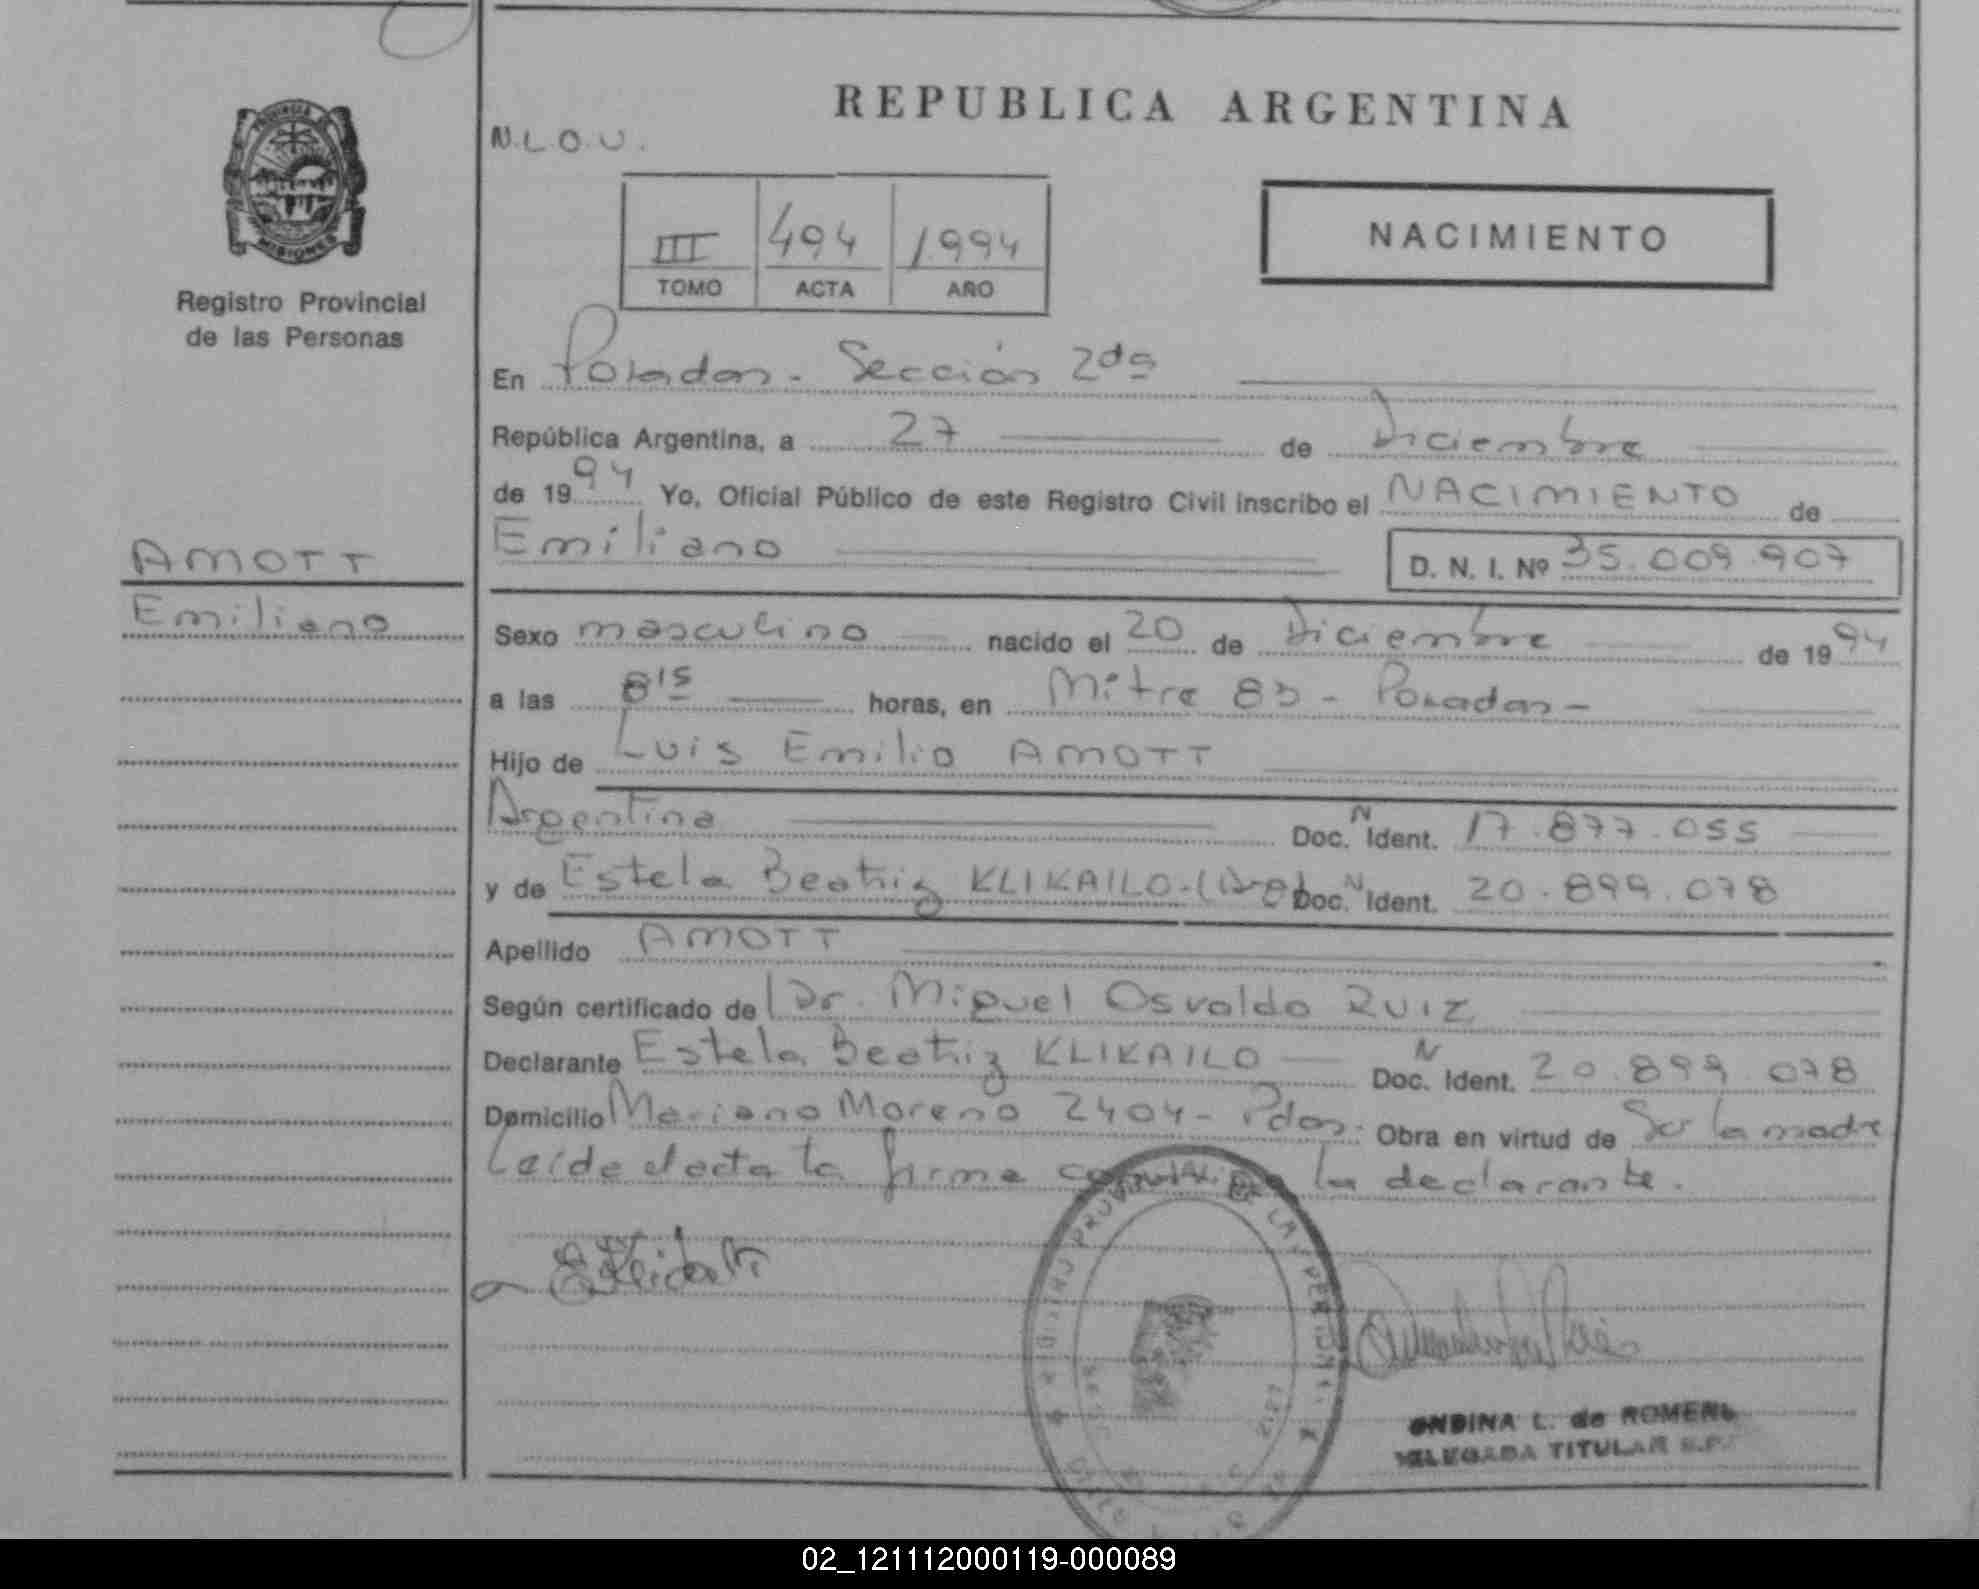 REPUBLICA ARGENTINA
N.L.O.U.
PROVINCIA DE
MISIONES
Registro Provincial
de las Personas
III 494 1.994
TOMO ACTA AÑO
NACIMIENTO
En Posadas - Sección 2da
República Argentina, a 27 de Diciembre
de 1994 Yo, Oficial Público de este Registro Civil inscribo el NACIMIENTO de
Emiliano D. N. I. Nº 35.009.907
AMOTT
Emiliano
Sexo masculino nacido el 20 de Diciembre de 1994
a las 8 15 horas, en Mitre 83 - Posadas -
Hijo de Luis Emilio AMOTT
Argentina Doc. N Ident. 17.877.055
y de Estela Beatriz KLIKAILO - Doc. N Ident. 20.899.078
Apellido AMOTT
Según certificado de Dr. Miguel Osvaldo RUIZ
Declarante Estela Beatriz KLIKAILO Doc. N Ident. 20.899.078
Domicilio Mariano Moreno 2404 - Pdas. Obra en virtud de Ser la madre
Leída el acta la firma la declarante.
ONDINA L. de ROMERO
DELEGADA TITULAR R.P.
02_121112000119-000089